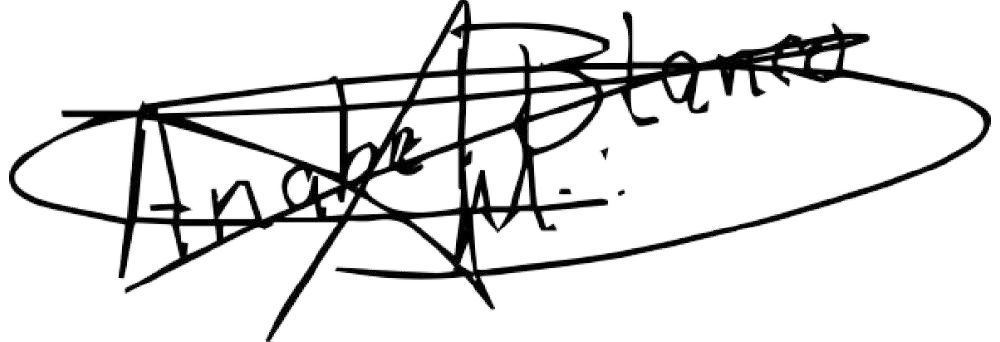 Anabel Blanco M.